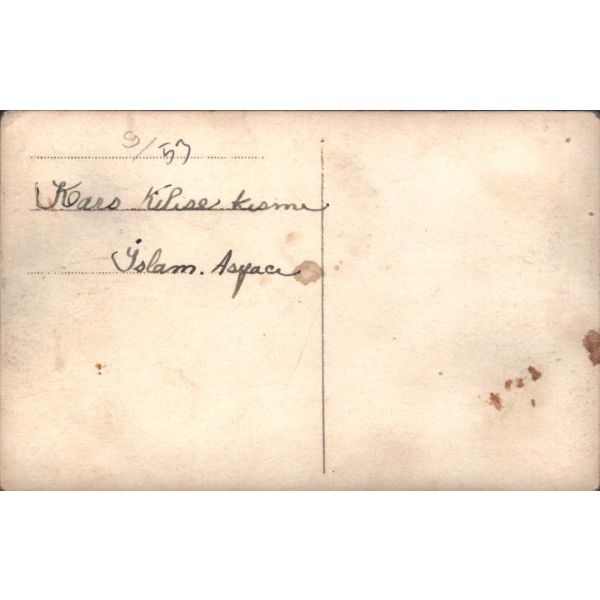 9/57
Kars Kilise kısmı
İslam. Asyacı